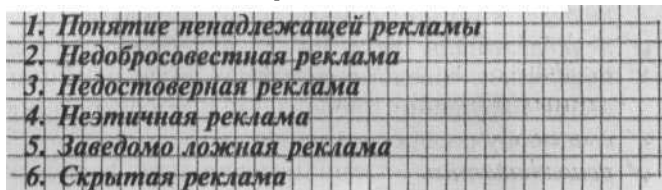 1. Понятие ненадлежащей рекламы
2. Недобросовестная реклама
3. Недостоверная реклама
4. Неэтичная реклама
5. Заведомо ложная реклама
6. Скрытая реклама